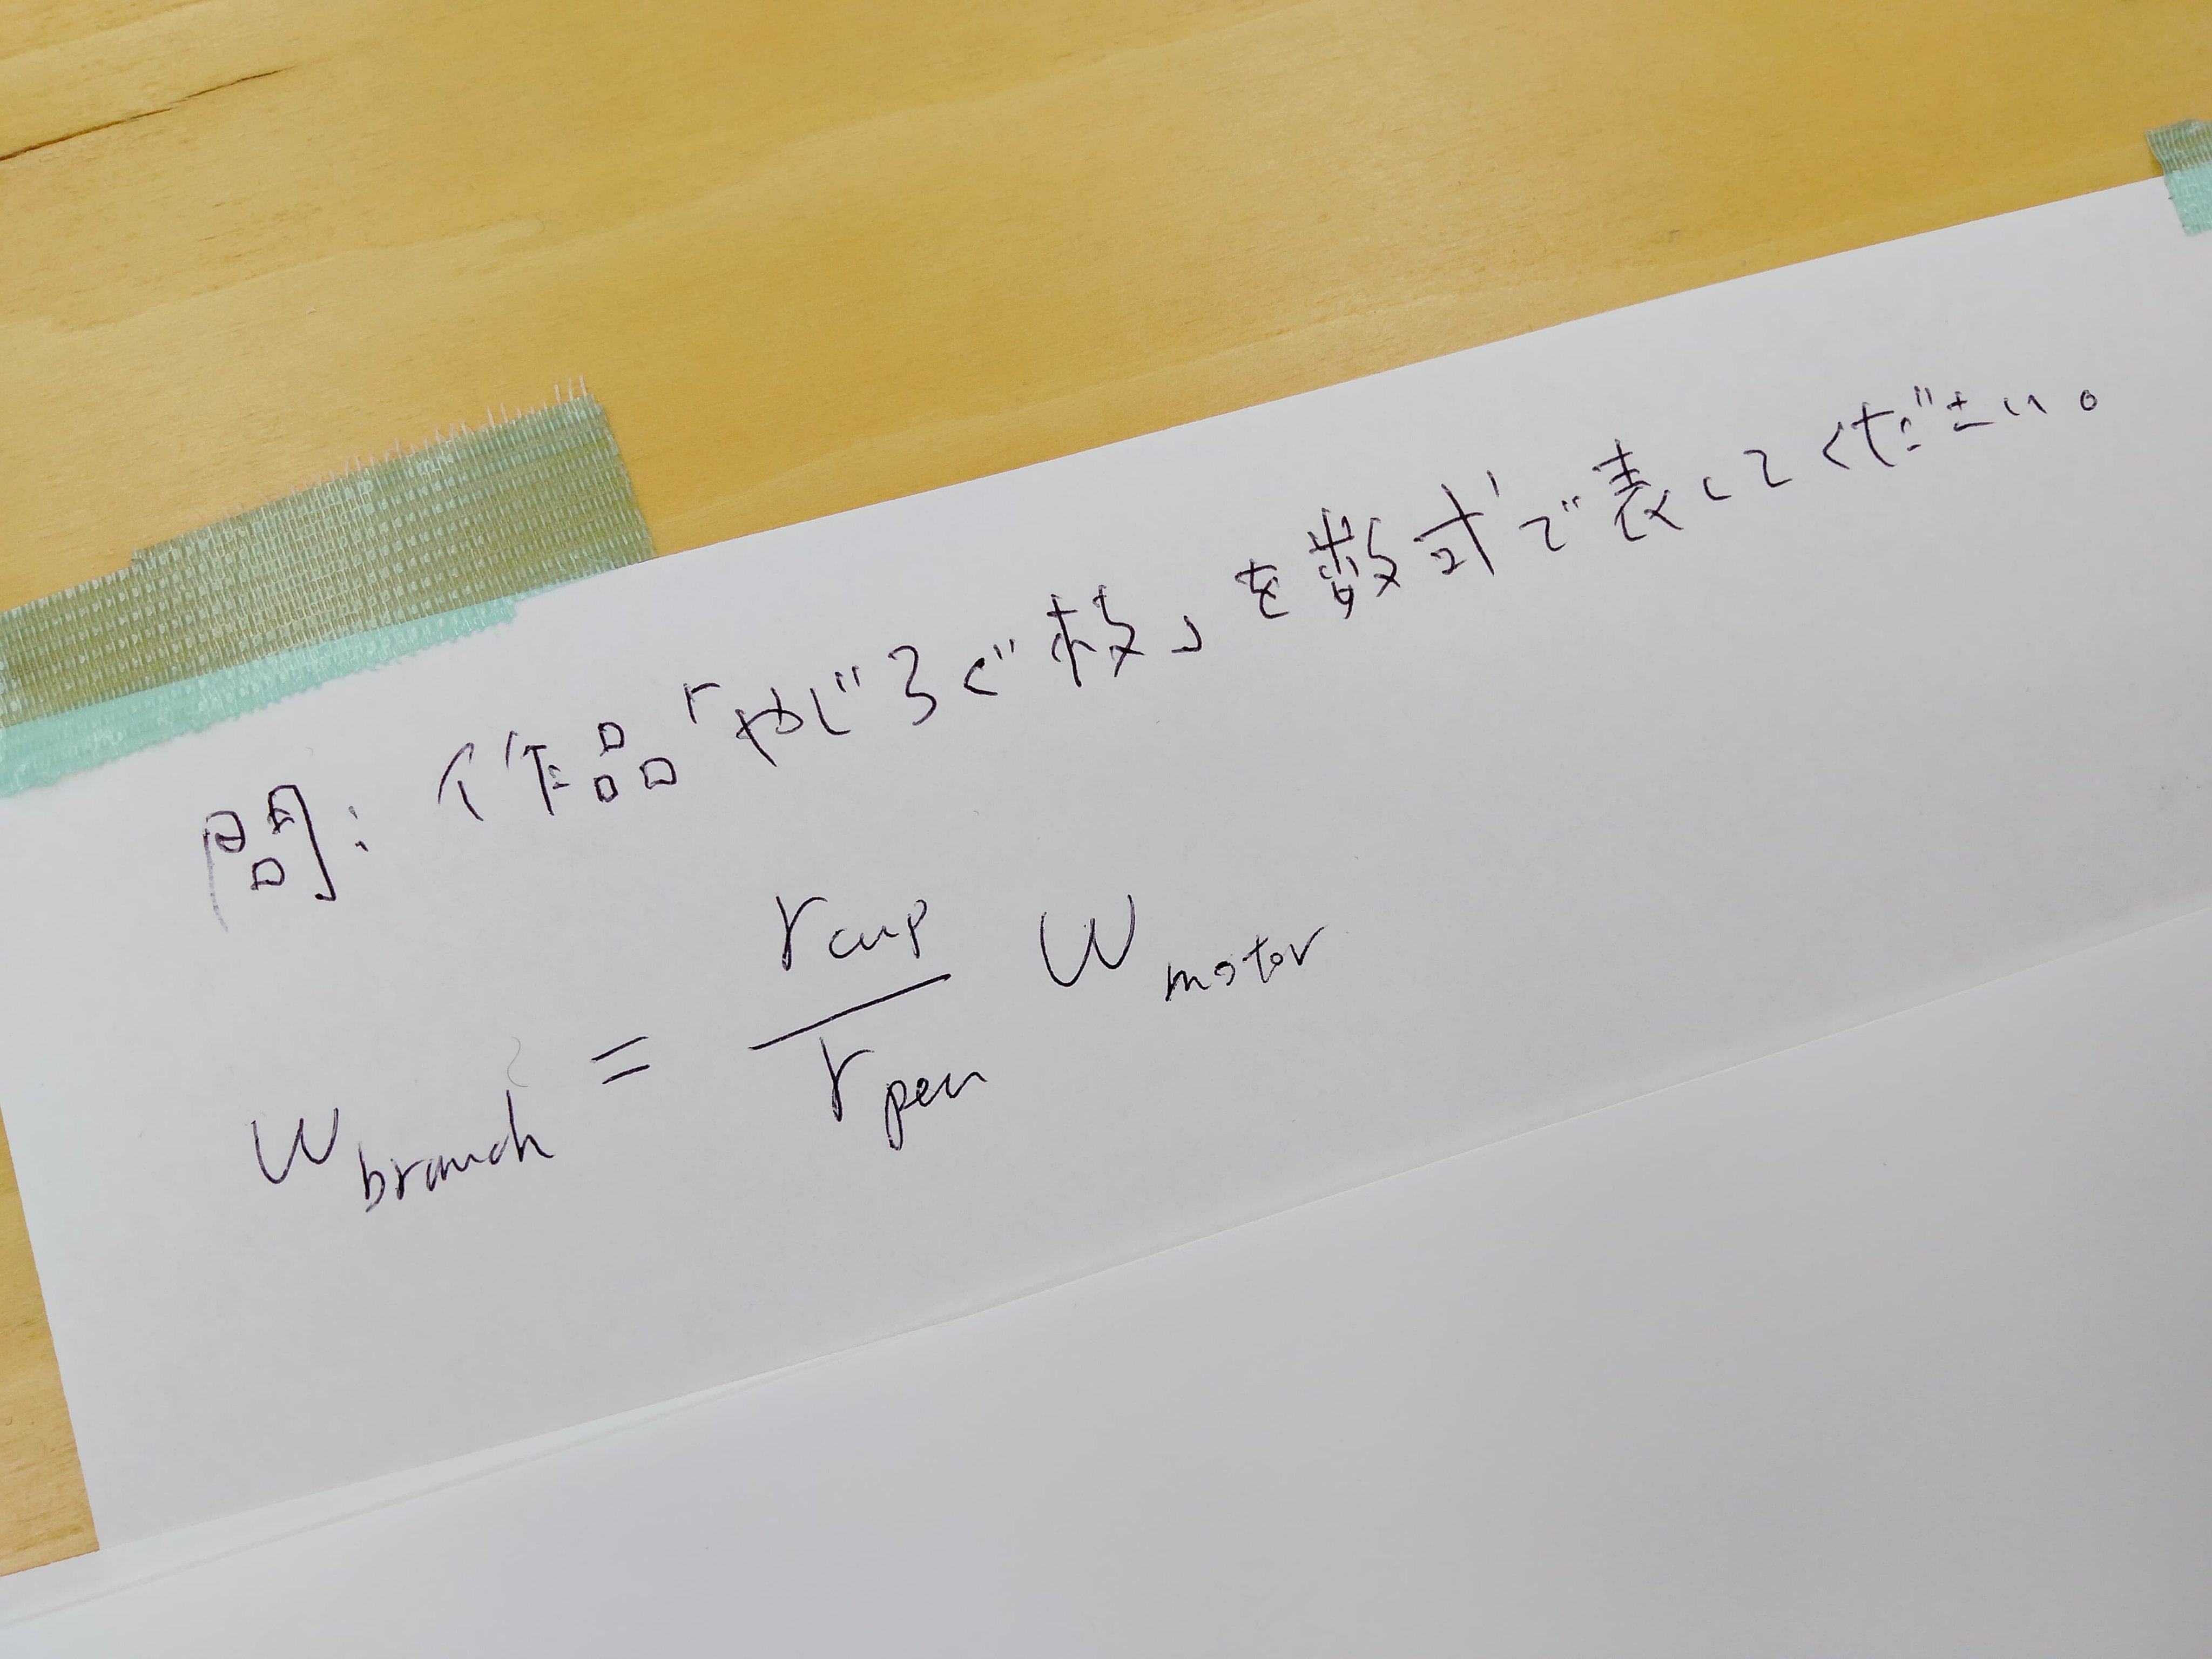 問：作品「やじろぐ枝」を数式で表してください。
ω_branch = r_cup / r_pen ω_motor